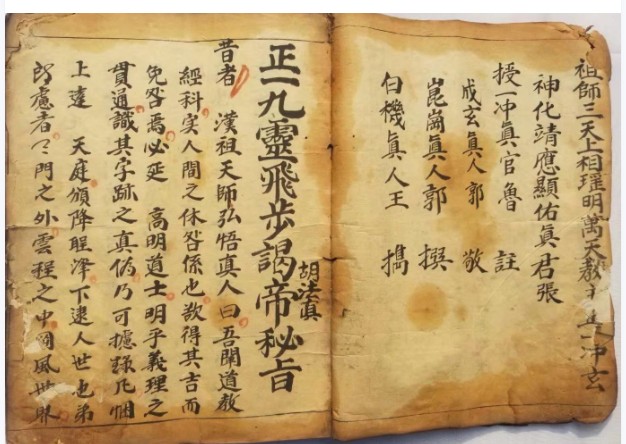 祖師三天上相瓘明萬天教主正一冲玄
神化靖應顯佑眞君張
授一冲眞官魯 註
成玄眞人郭 敬
崑崗眞人郭 撰
白機眞人王 擕
正一九靈飛步謁帝秘旨
胡法眞
昔者 漢祖天師弘悟真人曰吾聞道教
經科实人間之休咎係也欲得其吉而
免咎焉必延 高明道士明乎義理之
貫通識其字跡之真偽乃可據錄凡悃
上達 天庭頒降睲泽下逮人世也弟
卽慮者 門之外雲程之中罔風世界